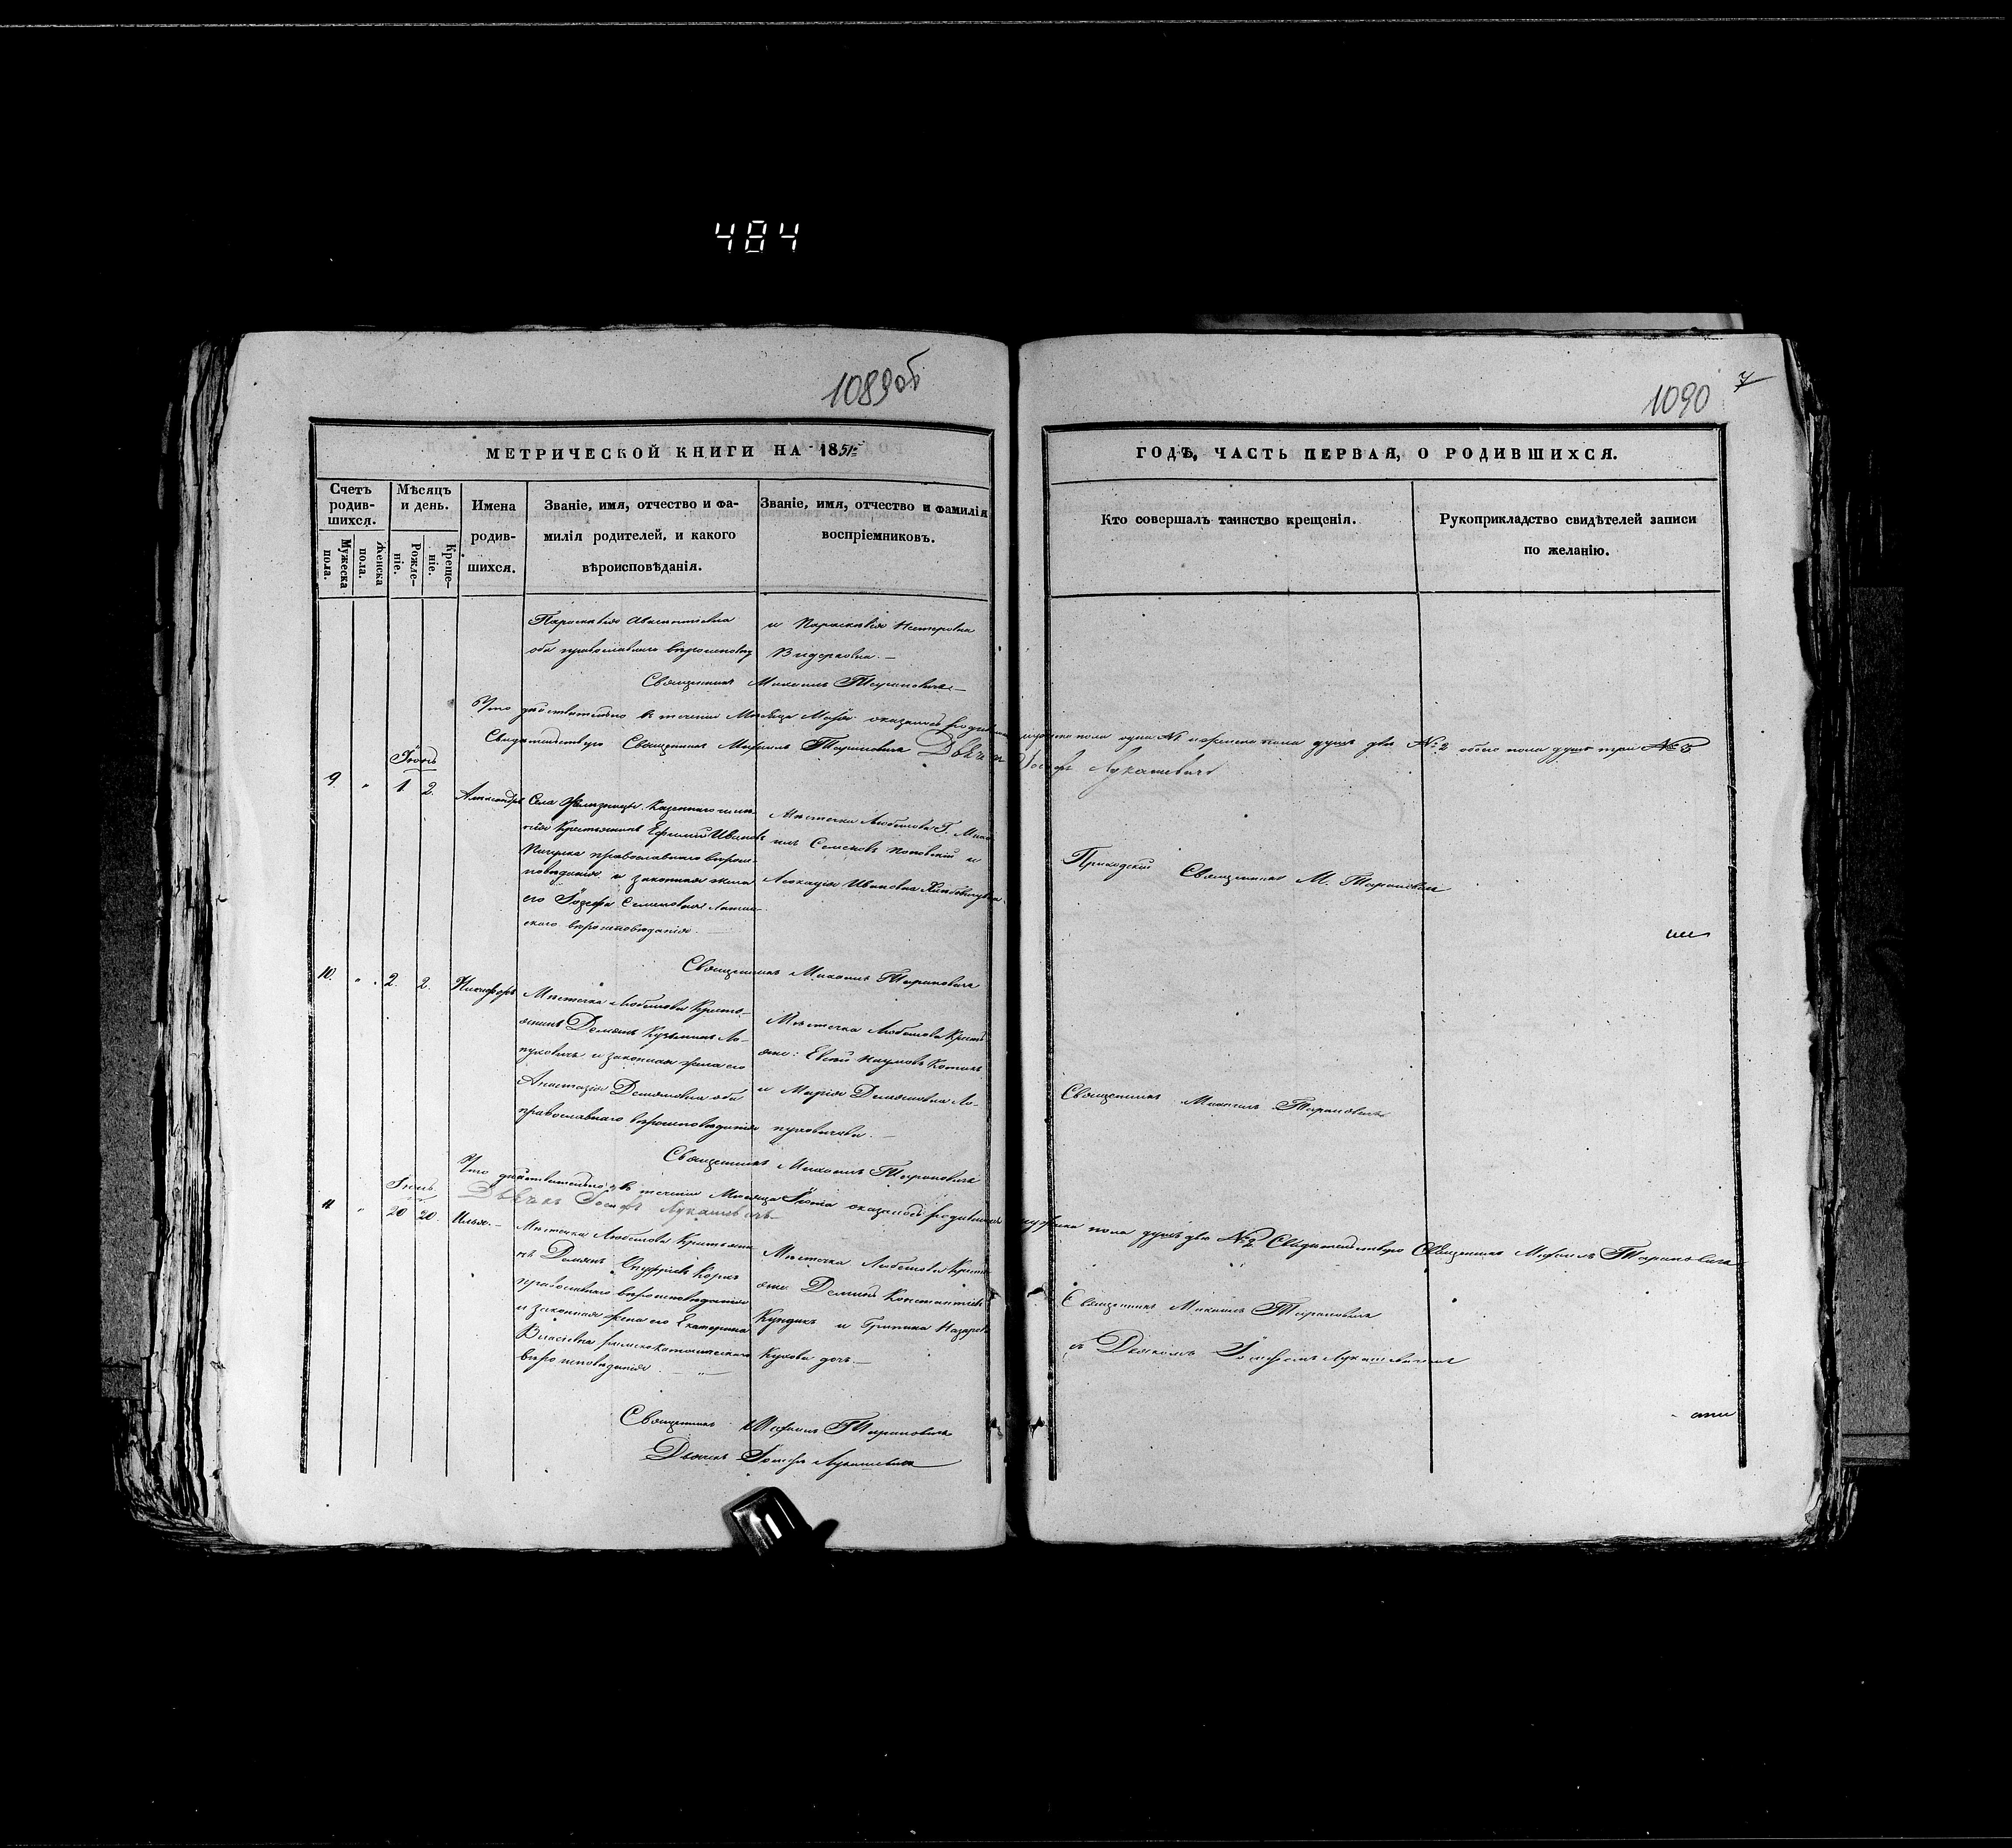 484
1089об
1090
7
МЕТРИЧЕСКОЙ КНИГИ НА 1851
ГОДЪ, ЧАСТЬ ПЕРВАЯ, О РОДИВШИХСЯ.
Счетъ родив-шихся.
Мужеска пола.
Женска пола.
Мѣсяцъ и день.
Рожде-ніе.
Креще-ніе.
Имена родив-шихся.
Званіе, имя, отчество и фа-
милія родителей, и какого
вѣроисповѣданія.
Званіе, имя, отчество и фамилія
воспріемниковъ.
Кто совершалъ таинство крещенія.
Рукоприкладство свидѣтелей записи
по желанію.
Параскевія
оба православнаго
и Параскевія Нестеровна
Священникъ Михаилъ Тарановичъ
Что дѣйствительно въ теченіи Мѣсяца Маія оказалось мужеска пола одна №1 и женска пола душъ двѣ №2 обоего пола душъ три №3
Свидѣтельствую Священникъ Михаилъ Тарановичъ Дьячекъ Іосифъ Лукашевичъ
Іюнь
9 " 1 2. Александръ
Села
Крестьянинъ Ефимій Ивановъ
православнаго вѣрои-
повѣданія и законная жена
его Іозефа Семеновна Латин-
скаго вѣроисповѣданія
Мѣстечка Любешова Г. Миха-
илъ Семеновъ и
Леокадія Ивановна
Приходскій Священникъ М. Тарановичъ
Священникъ Михаилъ Тарановичъ
10. " 2. 2. Никифоръ
Мѣстечка Любешова Кресть-
янинъ Демянъ Кузьминъ Ло-
пуховичъ и законная жена его
Анастазія Демяновна оба
православнаго вѣроисповѣданія
Мѣстечка Любешова Кресть
яне: Евсей Наумовъ
и Марія Демяновна Ло-
пуховичева. —
Священникъ Михаилъ Тарановичъ
Священникъ Михаилъ Тарановичъ
Что дѣйствительно въ теченіи Мѣсяца Іюня оказалось родившихся мужеска пола душъ двѣ №2 Свидѣтельствую Священникъ Михаилъ Тарановичъ
Дьячекъ Іосифъ Лукашевичъ
11 " 20 20. Илья. —
Мѣстечка Любешова Крестьяни-
нъ Демянъ Онуфріевъ
православнаго вѣроисповѣданія
и законная жена его Екатерина
Власіевна римско католическаго
вѣроисповѣданія
Мѣстечка Любешова Кресть
яне Демянъ Константиновъ
и Назарова
дочь. —
Священникъ Михаилъ Тарановичъ
съ Дьякомъ Іосифомъ Лукашевичемъ
Священникъ Михаилъ Тарановичъ
Дьячекъ Іосифъ Лукашевичъ